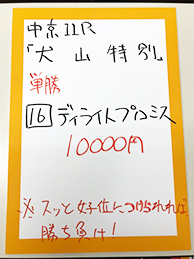 中京11R
「犬山特別」
単勝
16 ディライトプロミス
10000円
※スッと好位につけられれば
勝ち負け!